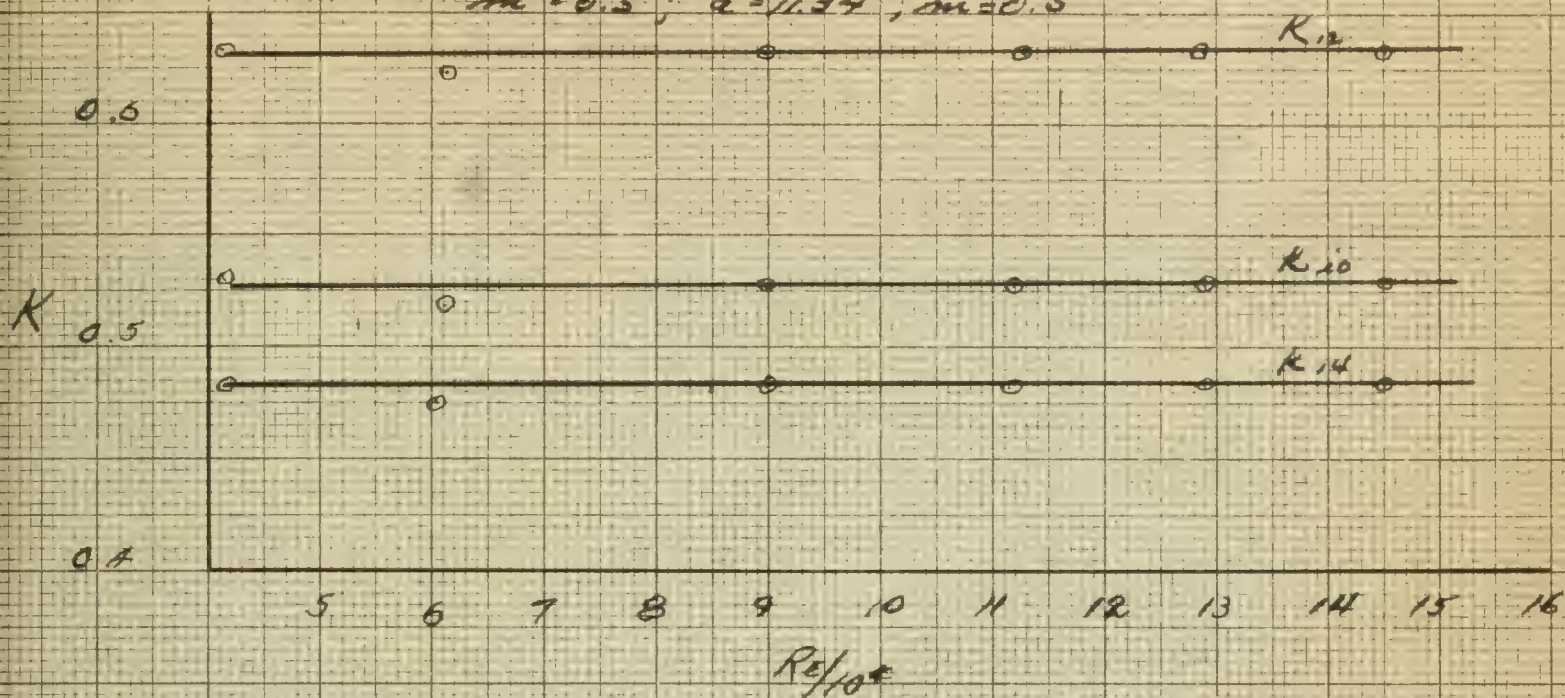 m = 0.5 ; a = 11.34 ; m = 0.5
K12
0.6
K10
K
0.5
K14
0.4
5 6 7 8 9 10 11 12 13 14 15 16
Re/10⁴